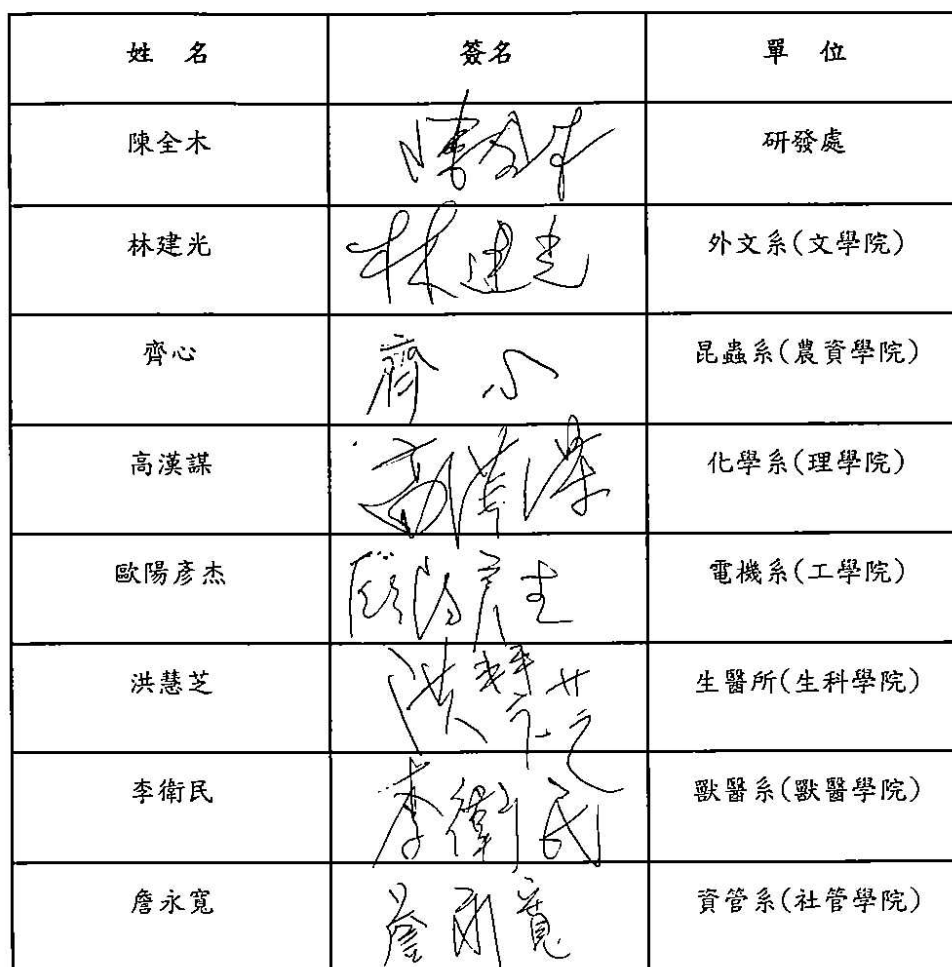 姓 名 簽名 單 位
陳全木 陳全木 研發處
林建光 林建光 外文系(文學院)
齊心 齊心 昆蟲系(農資學院)
高漢謀 高漢謀 化學系(理學院)
歐陽彥杰 歐陽彥杰 電機系(工學院)
洪慧芝 洪慧芝 生醫所(生科學院)
李衛民 李衛民 獸醫系(獸醫學院)
詹永寬 詹永寬 資管系(社管學院)